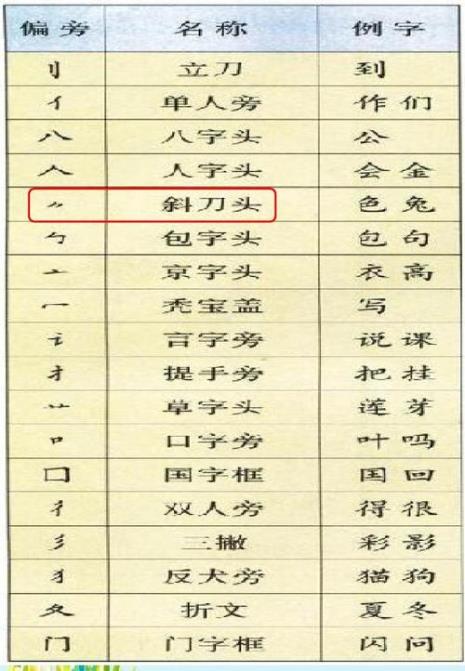 偏旁 名称 例字
刂 立刀 到
亻 单人旁 作 们
八 八字头 公
人 人字头 会 金
⺈ 斜刀头 色 兔
勹 包字头 包 句
亠 京字头 衣 高
冖 秃宝盖 写
讠 言字旁 说 课
扌 提手旁 把 挂
艹 草字头 莲 芽
口 口字旁 叶 吗
囗 国字框 国 回
彳 双人旁 得 很
彡 三撇 彩 影
犭 反犬旁 猫 狗
夂 折文 夏 冬
门 门字框 闪 问